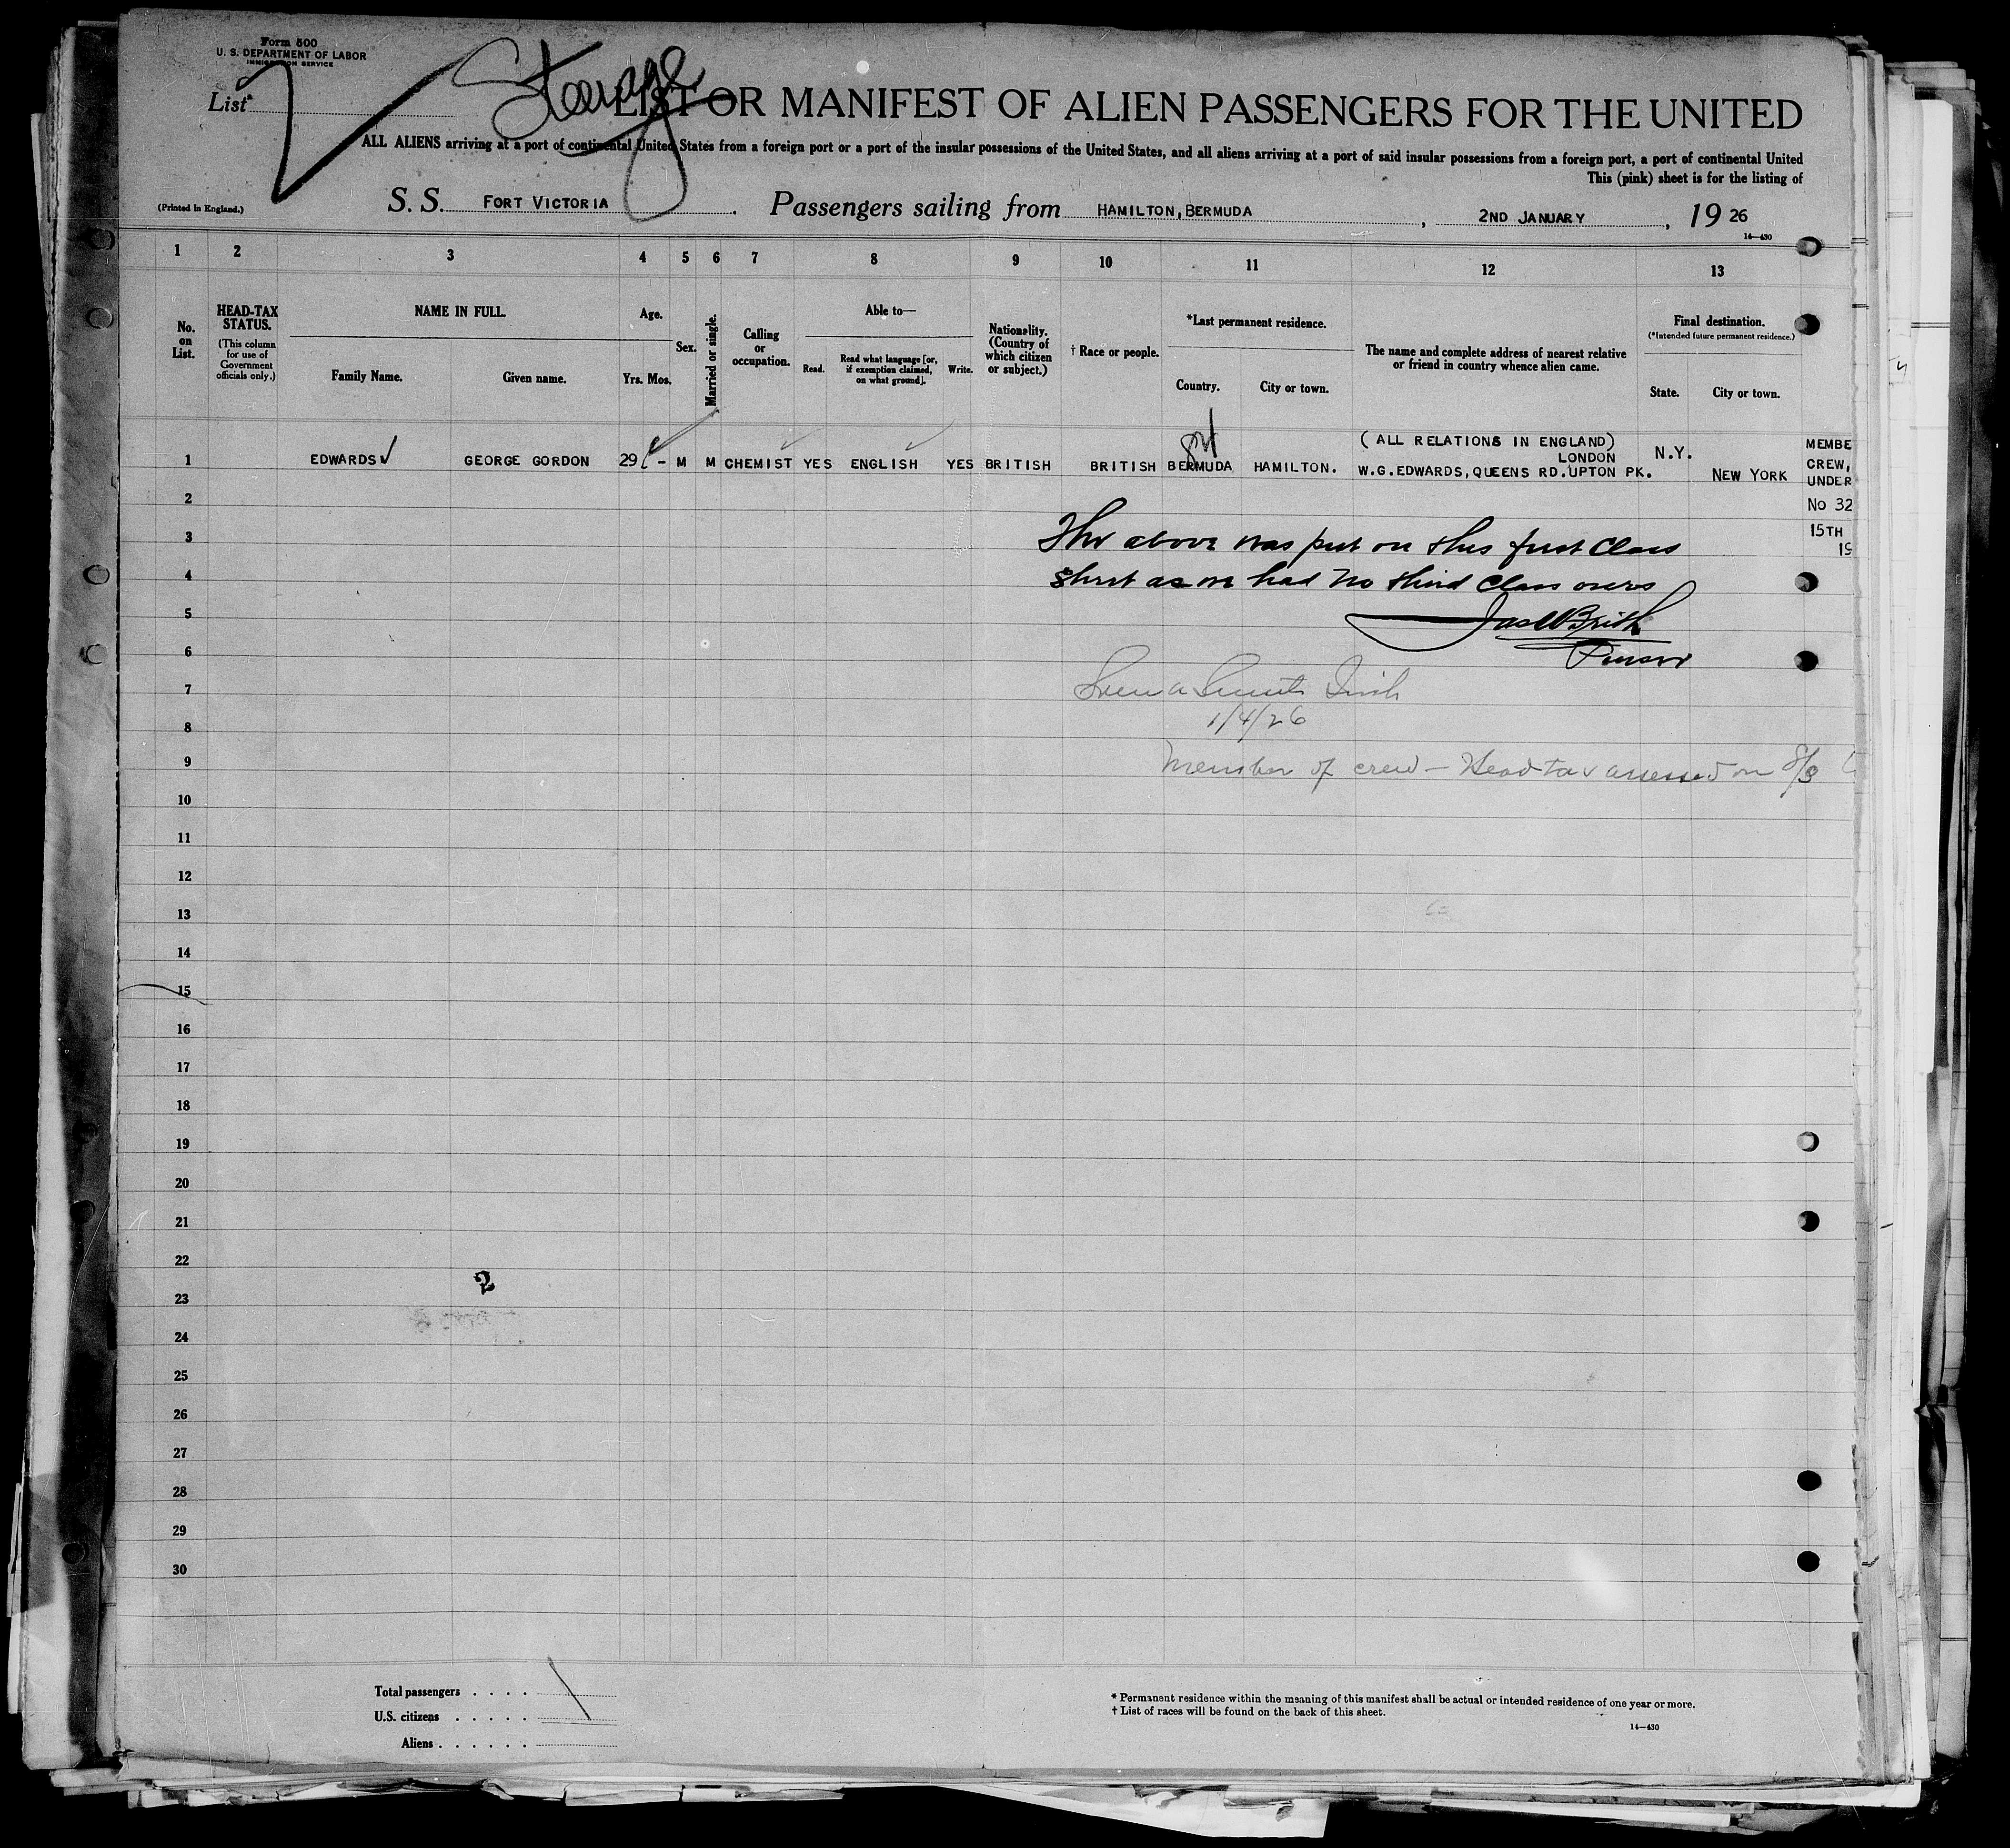 Form 500
U. S. DEPARTMENT OF LABOR
IMMIGRATION SERVICE
List
Steerage
LIST OR MANIFEST OF ALIEN PASSENGERS FOR THE UNITED
ALL ALIENS arriving at a port of continental United States from a foreign port or a port of the insular possessions of the United States, and all aliens arriving at a port of said insular possessions from a foreign port, a port of continental United
This (pink) sheet is for the listing of
(Printed in England.)
S. S. FORT VICTORIA. Passengers sailing from HAMILTON, BERMUDA, 2ND JANUARY, 19 26
14—430
1 2 3 4 5 6 7 8 9 10 11 12 13
No. on List.
HEAD-TAX STATUS.
(This column for use of Government officials only.)
NAME IN FULL.
Family Name. Given name.
Age.
Yrs. Mos.
Sex.
Married or single.
Calling or occupation.
Able to—
Read. Read what language [or, if exemption claimed, on what ground]. Write.
Nationality. (Country of which citizen or subject.)
† Race or people.
*Last permanent residence.
Country. City or town.
The name and complete address of nearest relative or friend in country whence alien came.
Final destination.
(*Intended future permanent residence.)
State. City or town.
1 EDWARDS GEORGE GORDON 29 - M M CHEMIST YES ENGLISH YES BRITISH BRITISH BERMUDA HAMILTON. (ALL RELATIONS IN ENGLAND) LONDON W.G.EDWARDS, QUEENS RD. UPTON PK. N.Y. NEW YORK
MEMBE
CREW,
UNDER
No 32
15TH
19
2
3
The above was put on this first Class
4
sheet as we had no third Class ones
5
6
Purser
7
1/4/26
8
9
Member of crew – Head tax assessed on 8/3
10
11
12
13
14
15
16
17
18
19
20
21
22
2
23
24
25
26
27
28
29
30
Total passengers . . . .
U.S. citizens . . . . .
Aliens . . . . . .
* Permanent residence within the meaning of this manifest shall be actual or intended residence of one year or more.
† List of races will be found on the back of this sheet.
14—430